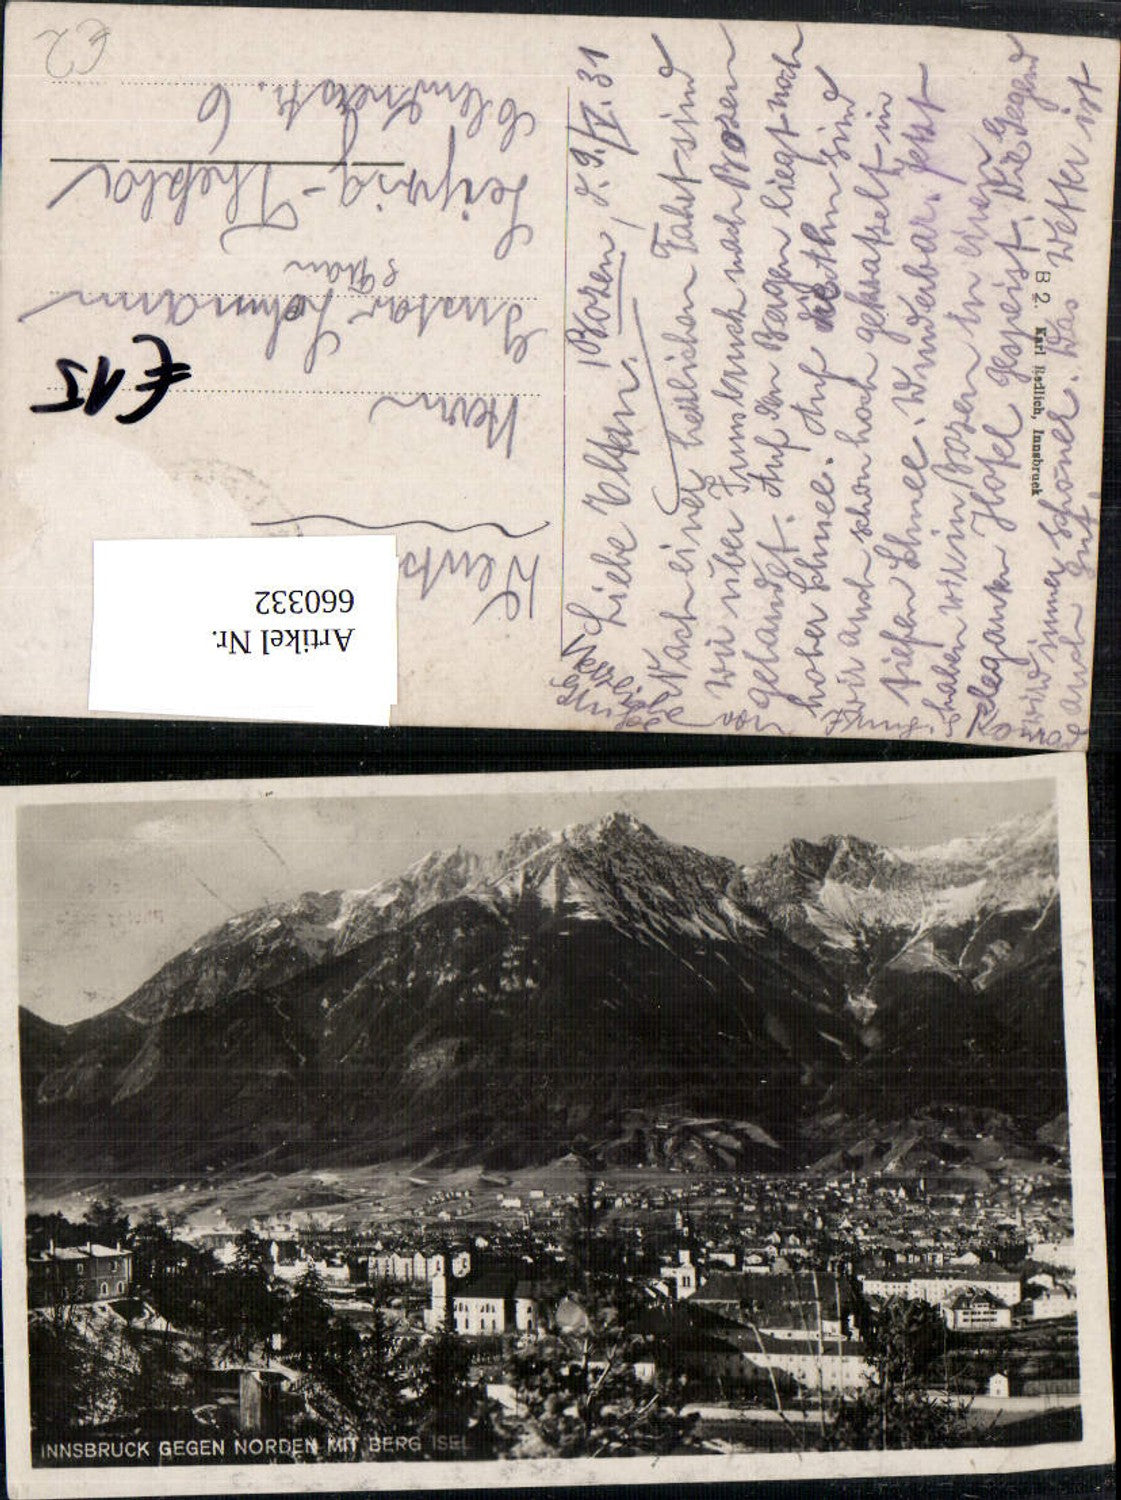 Bozen, d. 9./IV. 31
Liebe Eltern.
Nach einer herrlichen Fahrt sind
wir über Innsbruck nach Bozen
gelandet. Auf den Bergen liegt noch
hoher Schnee. Auf die Höhn sind
wir auch schon hoch gekraxelt in
tiefen Schnee. Wunderbar. Jetzt
haben wir in Bozen in einen
eleganten Hotel gespeist. Die Gegend
wird immer schöner. Das Wetter ist
auch gut.
Herrn
Gustav Lehmann
& Frau
Leipzig-Thekla
6
B 2. Karl Redlich, Innsbruck
€ 15
€2
Artikel Nr.
660332
INNSBRUCK GEGEN NORDEN MIT BERG ISEL